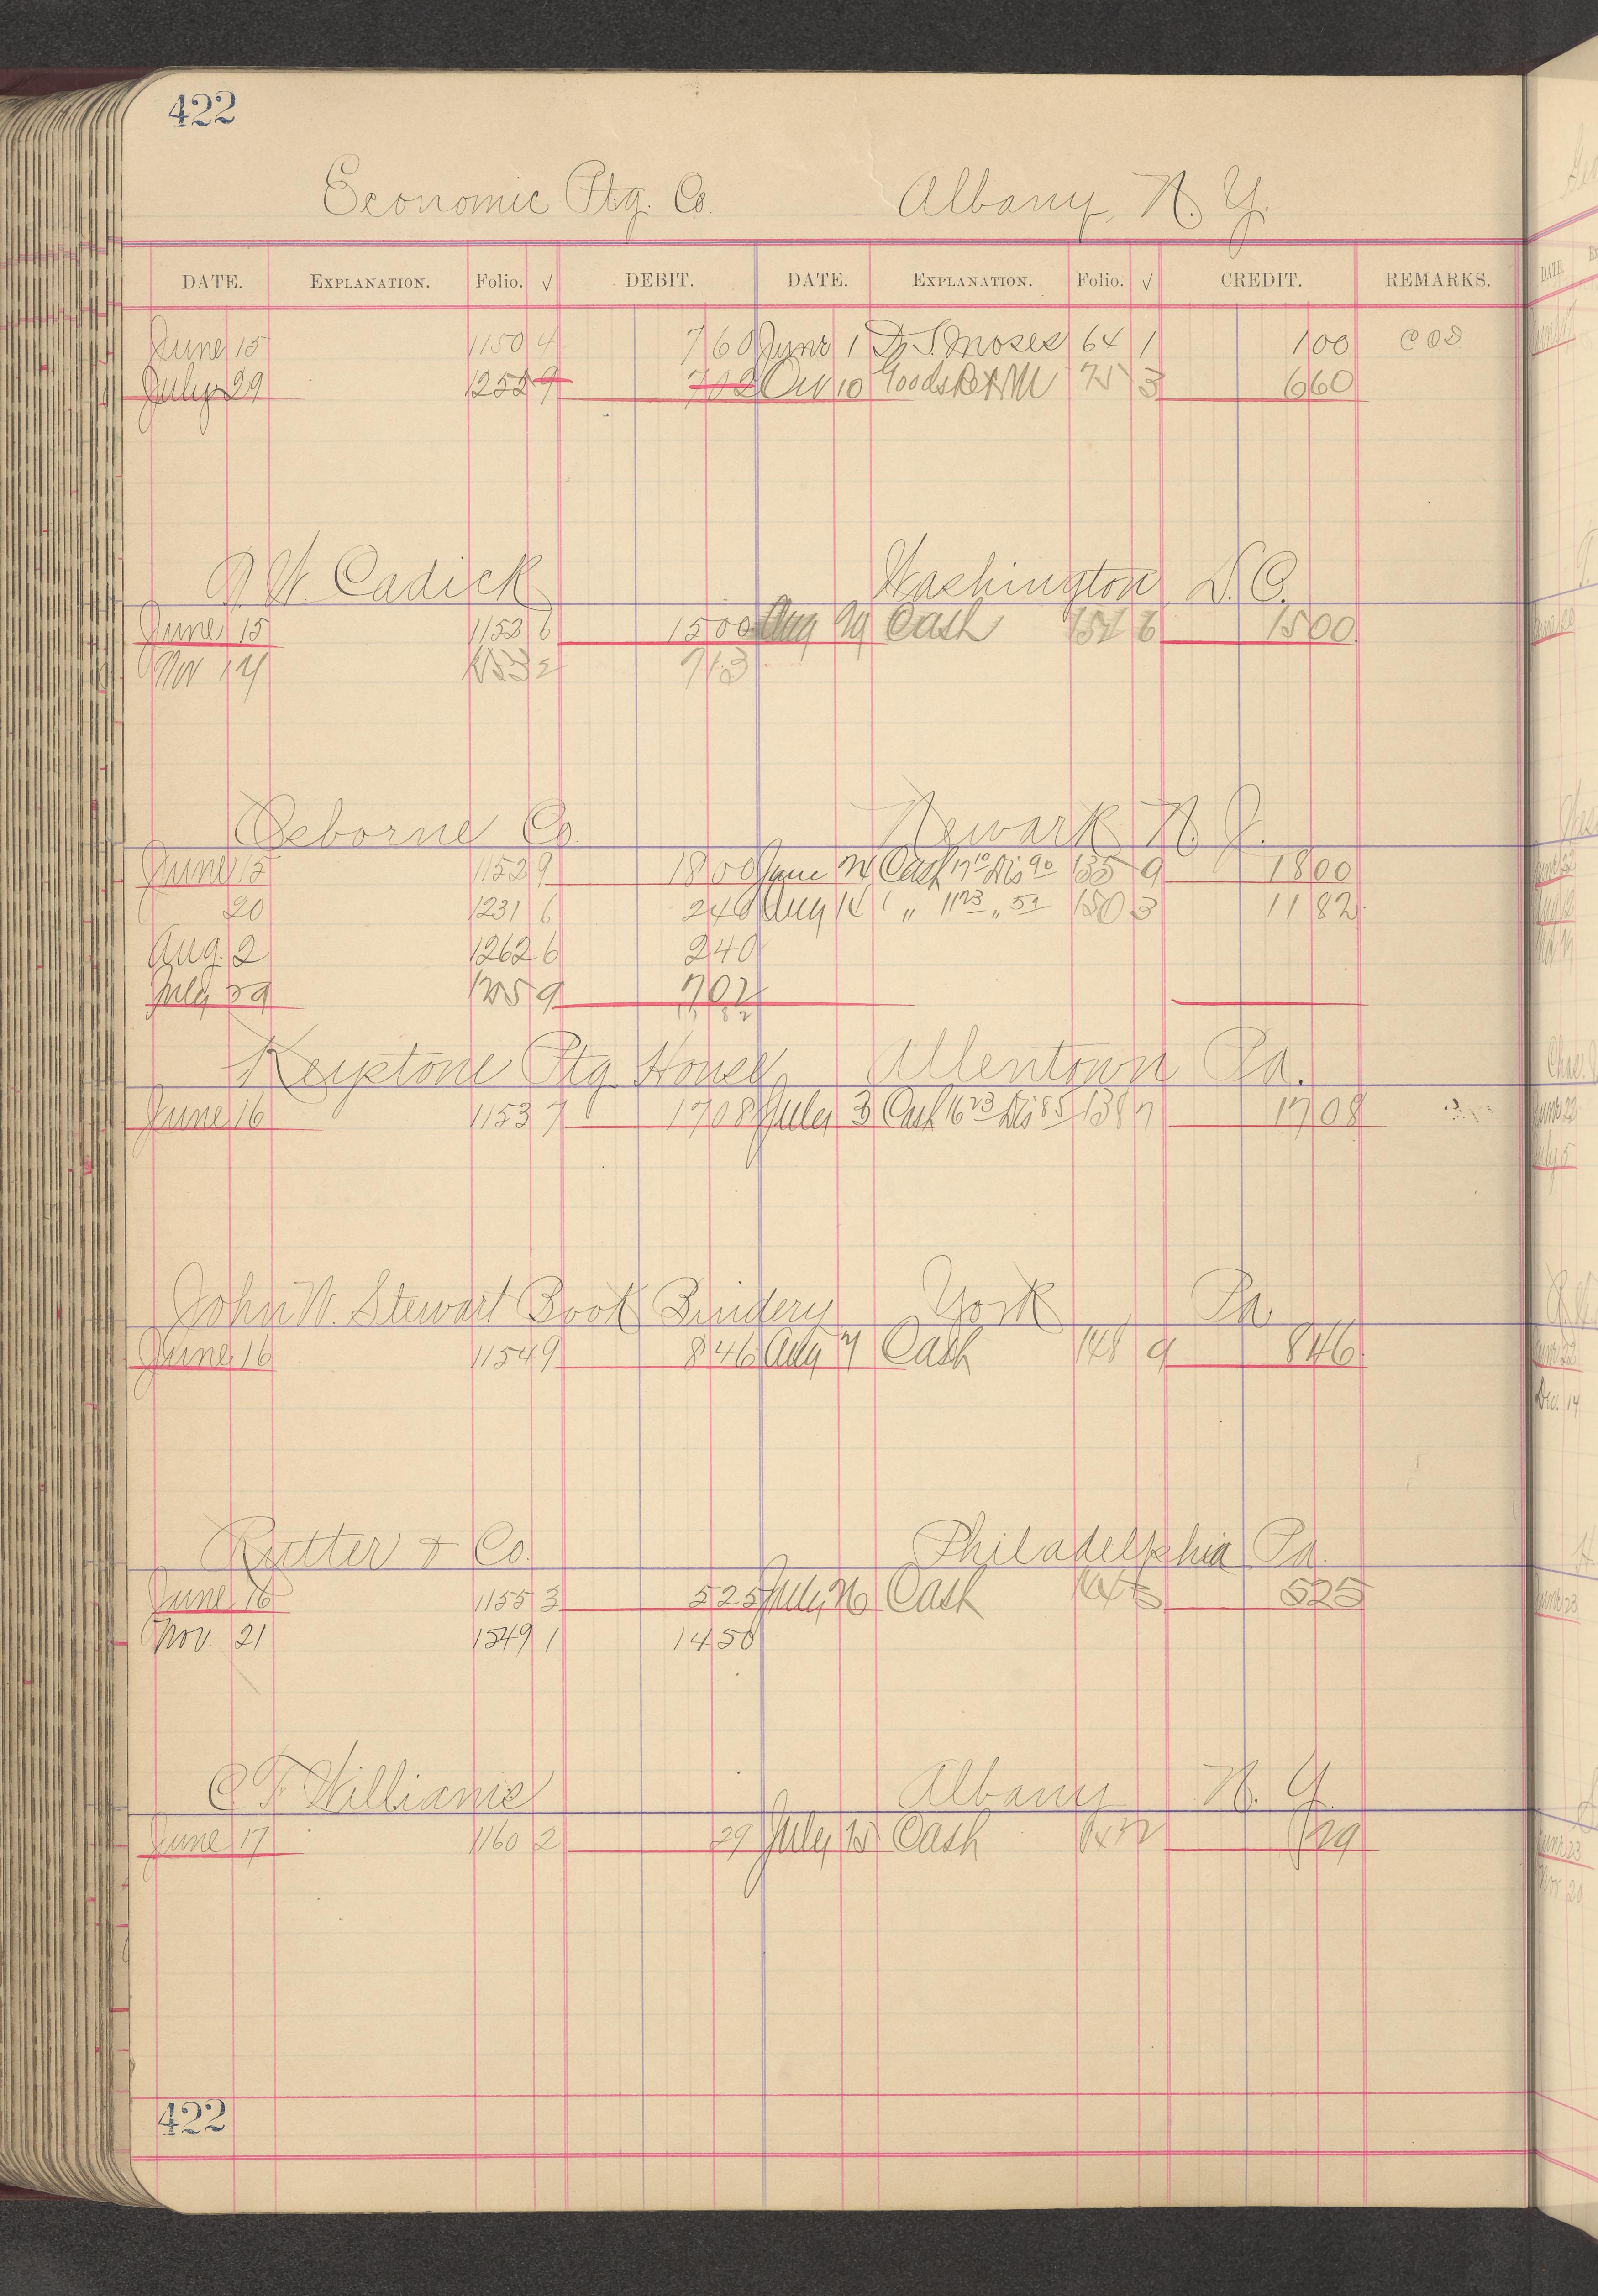 422
Economic Ptg. Co. Albany, N. Y.
DATE. EXPLANATION. Folio. √ DEBIT. DATE. EXPLANATION. Folio. √ CREDIT. REMARKS.
June 15 1150 4 7 60 June 1 Dr S. Moses 64 1 1 00 C O D
July 29 1252 9 7 02 10 Goods Ret 75 3 6 60
W. Cadick Washington, D. C.
June 15 1153 6 15 00 Aug 29 Cash 6 15 00
Nov 14 1533 2 7 13
Osborne Co. Newark N. J.
June 15 1152 9 18 00 June Cash 17 10 Dis 90 135 9 18 00
20 1231 6 2 40 Aug 14 " " 11 23 " 59 150 3 11 82
Aug. 2 1262 6 2 40
July 29 1255 9 7 02
11 82
Keystone Ptg. House Allentown Pa.
June 16 1153 7 17 08 July 3 Cash 16 23 Dis 85 138 7 17 08
John W. Stewart Book Bindery York Pa
June 16 1154 9 8 46 Aug 7 Cash 148 9 8 46
Rutter & Co. Philadelphia Pa.
June 16 1155 3 5 25 July 26 Cash 5 25
Nov. 21 1549 1 14 50
C. F. Williams Albany N. Y.
June 17 1160 2 29 July 15 Cash 29
422